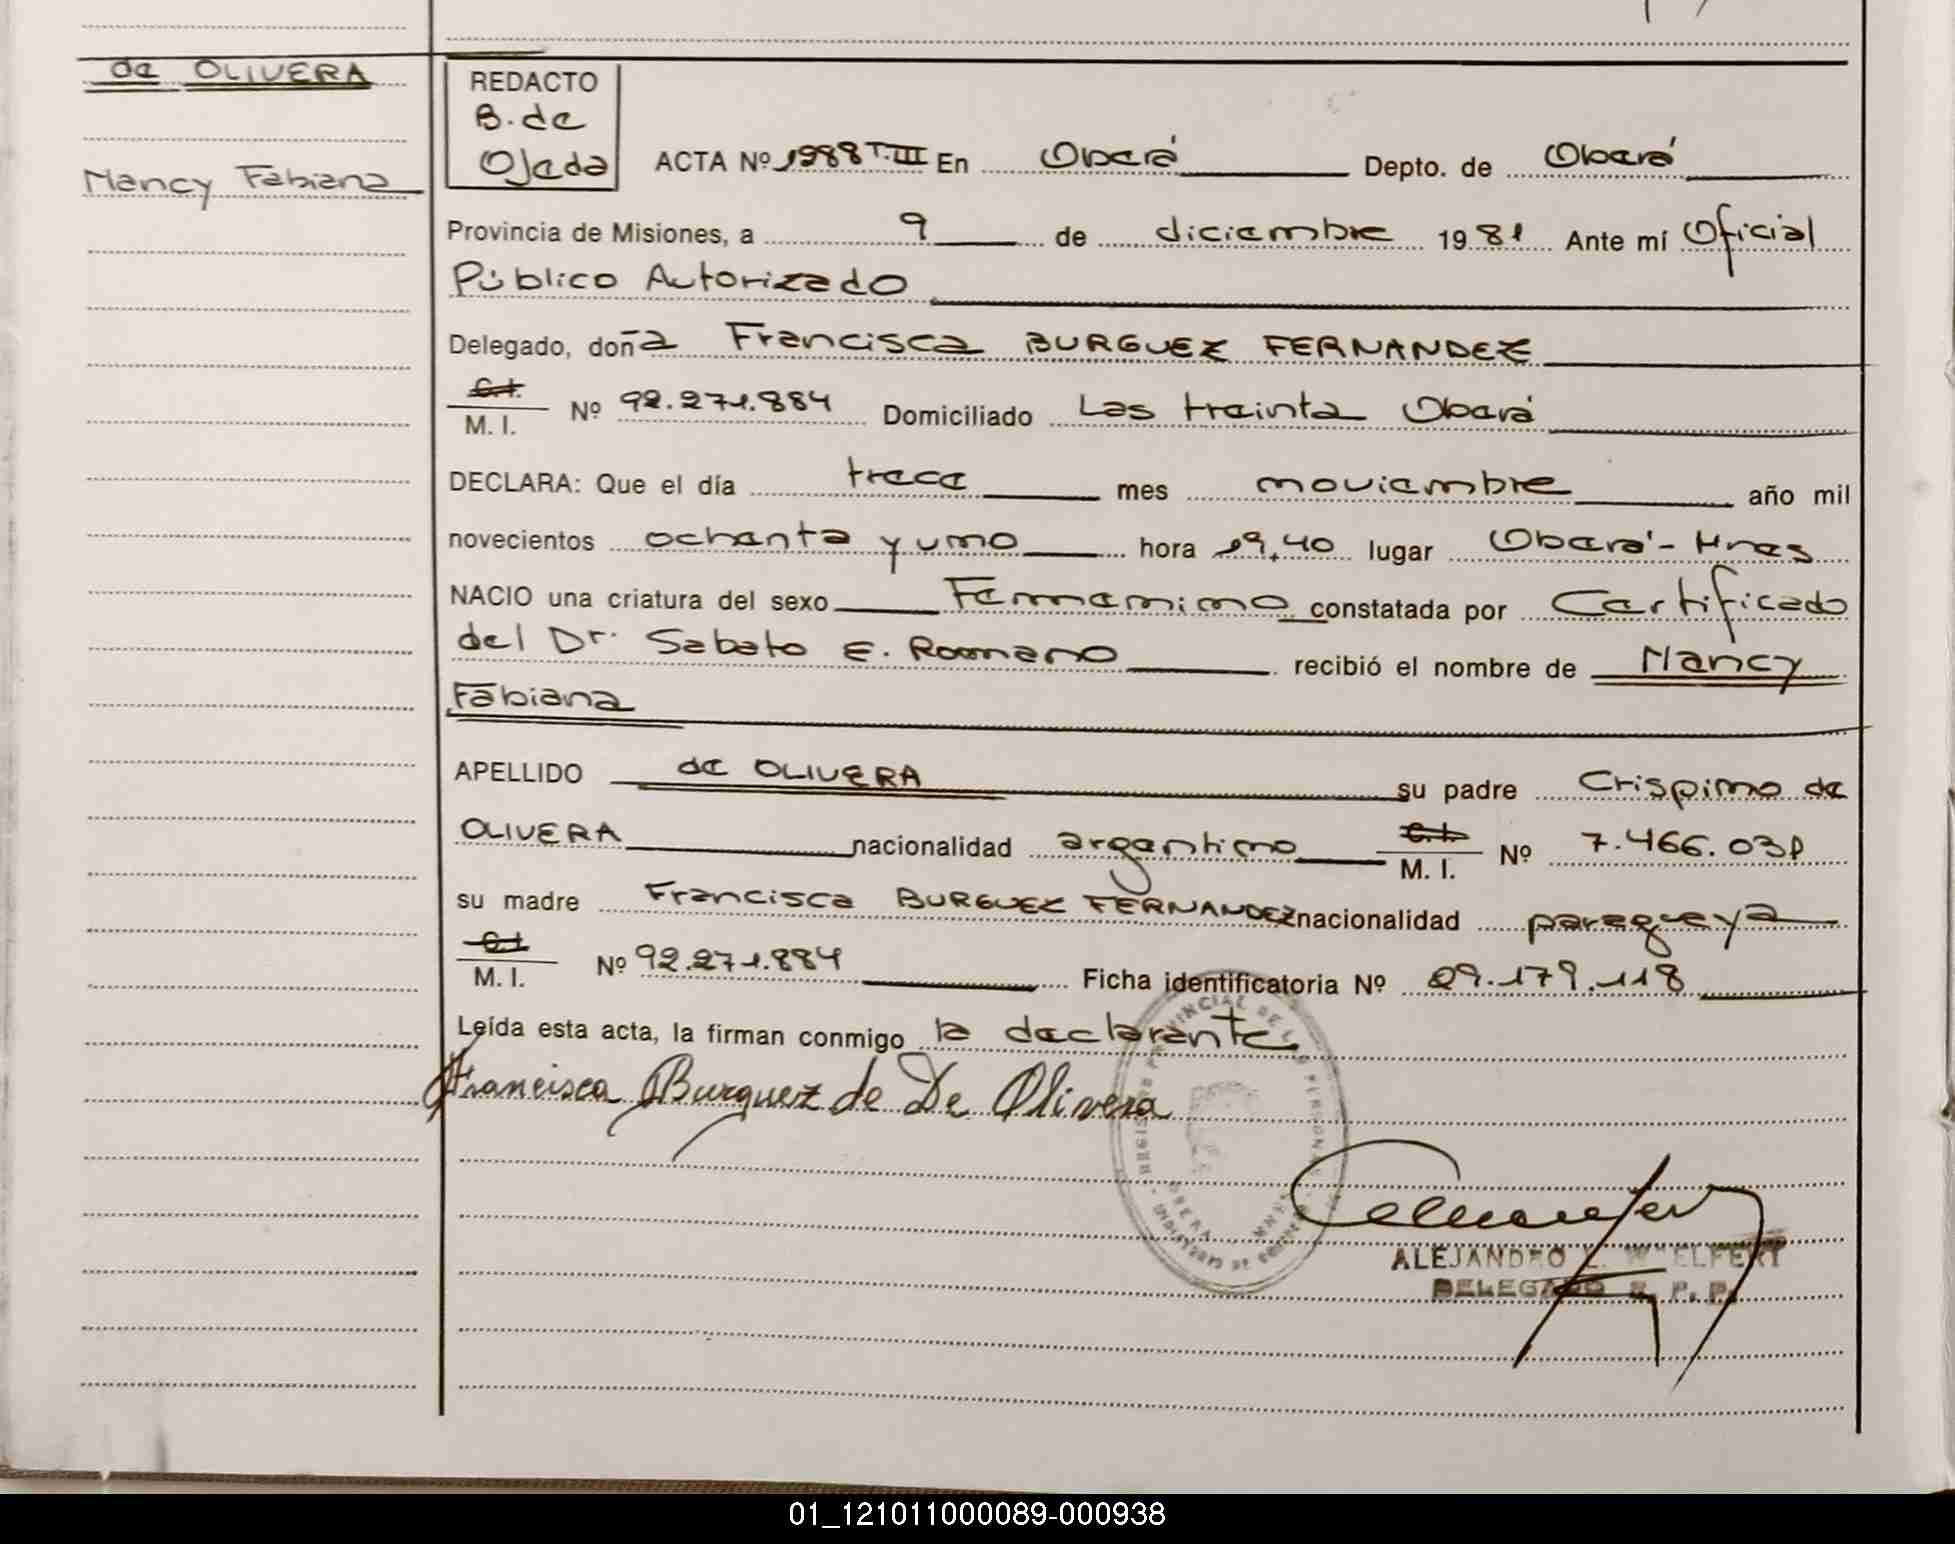 de OLIVERA
Nancy Fabiana
REDACTO
B. de
Ojeda
ACTA Nº 1988 T.III En Oberá Depto. de Oberá
Provincia de Misiones, a 9 de diciembre 1981 Ante mí Oficial
Público Autorizado
Delegado, doña Francisca BURGUEZ FERNANDEZ
C.I.
M. I. Nº 92.271.884 Domiciliado Las treinta Oberá
DECLARA: Que el día trece mes noviembre año mil
novecientos ochenta y uno hora 19,40 lugar Oberá - Mnes
NACIO una criatura del sexo Femenino constatada por Certificado
del Dr. Sabato E. Romano recibió el nombre de Nancy
Fabiana
APELLIDO de OLIVERA su padre Crispino de
OLIVERA nacionalidad argentino C.I. M. I. Nº 7.466.031
su madre Francisca BURGUEZ FERNANDEZ nacionalidad paraguaya
C.I.
M. I. Nº 92.271.884 Ficha identificatoria Nº 29.179.118
Leída esta acta, la firman conmigo la declarante
Francisca Burguez de De Olivera
ALEJANDRO
DELEGADO R. P. P.
01_121011000089-000938